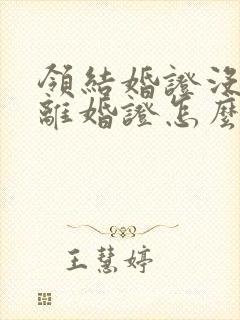 領結婚證沒
離婚證怎麼
王慧婷